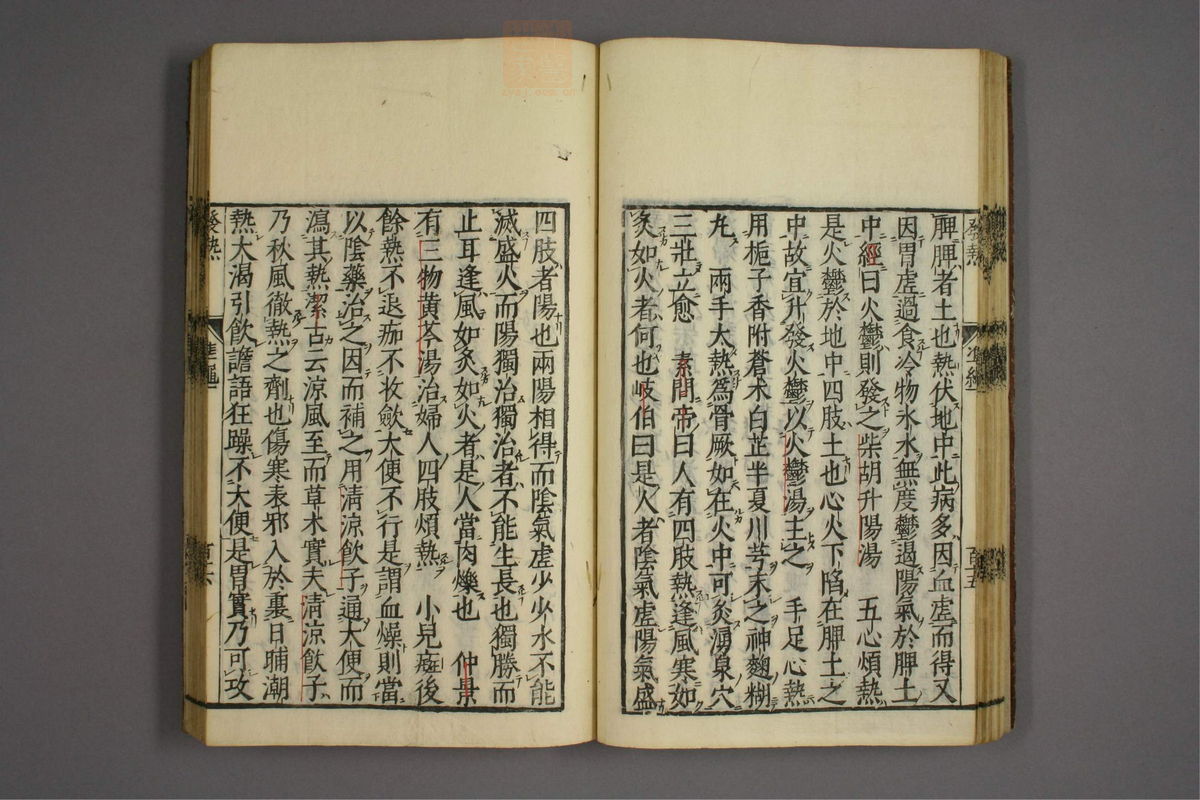 脾脾者土也熱伏地中此病多因血虛而得又
因胃虛過食冷物氷水無度鬱遏陽氣於脾土
中經曰火鬱則發之柴胡升陽湯　五心煩熱
是火鬱於地中四肢土也心火下陷在脾土之
中故宜升發火鬱以火鬱湯主之　手足心熱
用梔子香附蒼术白芷半夏川芎末之神麴糊
丸　兩手大熱爲骨厥如在火中可灸湧泉穴
三壯立愈　素問帝曰人有四肢熱逢風寒如
炙如火者何也岐伯曰是人者陰氣虛陽氣盛
四肢者陽也兩陽相得而陰氣虛少少水不能
滅盛火而陽獨治獨治者不能生長也獨勝而
止耳逢風如炙如火者是人當肉爍也　仲景
有三物黃芩湯治婦人四肢煩熱　小兒㾮後
餘熱不退痂不收斂大便不行是謂血燥則當
以陰藥治之因而補之用清涼飲子通大便而
瀉其熱潔古云涼風至而草木實夫清涼飲子
乃秋風徹熱之劑也傷寒表邪入於裏日晡潮
熱大渴引飲譫語狂躁不大便是胃實乃可攻
發熱